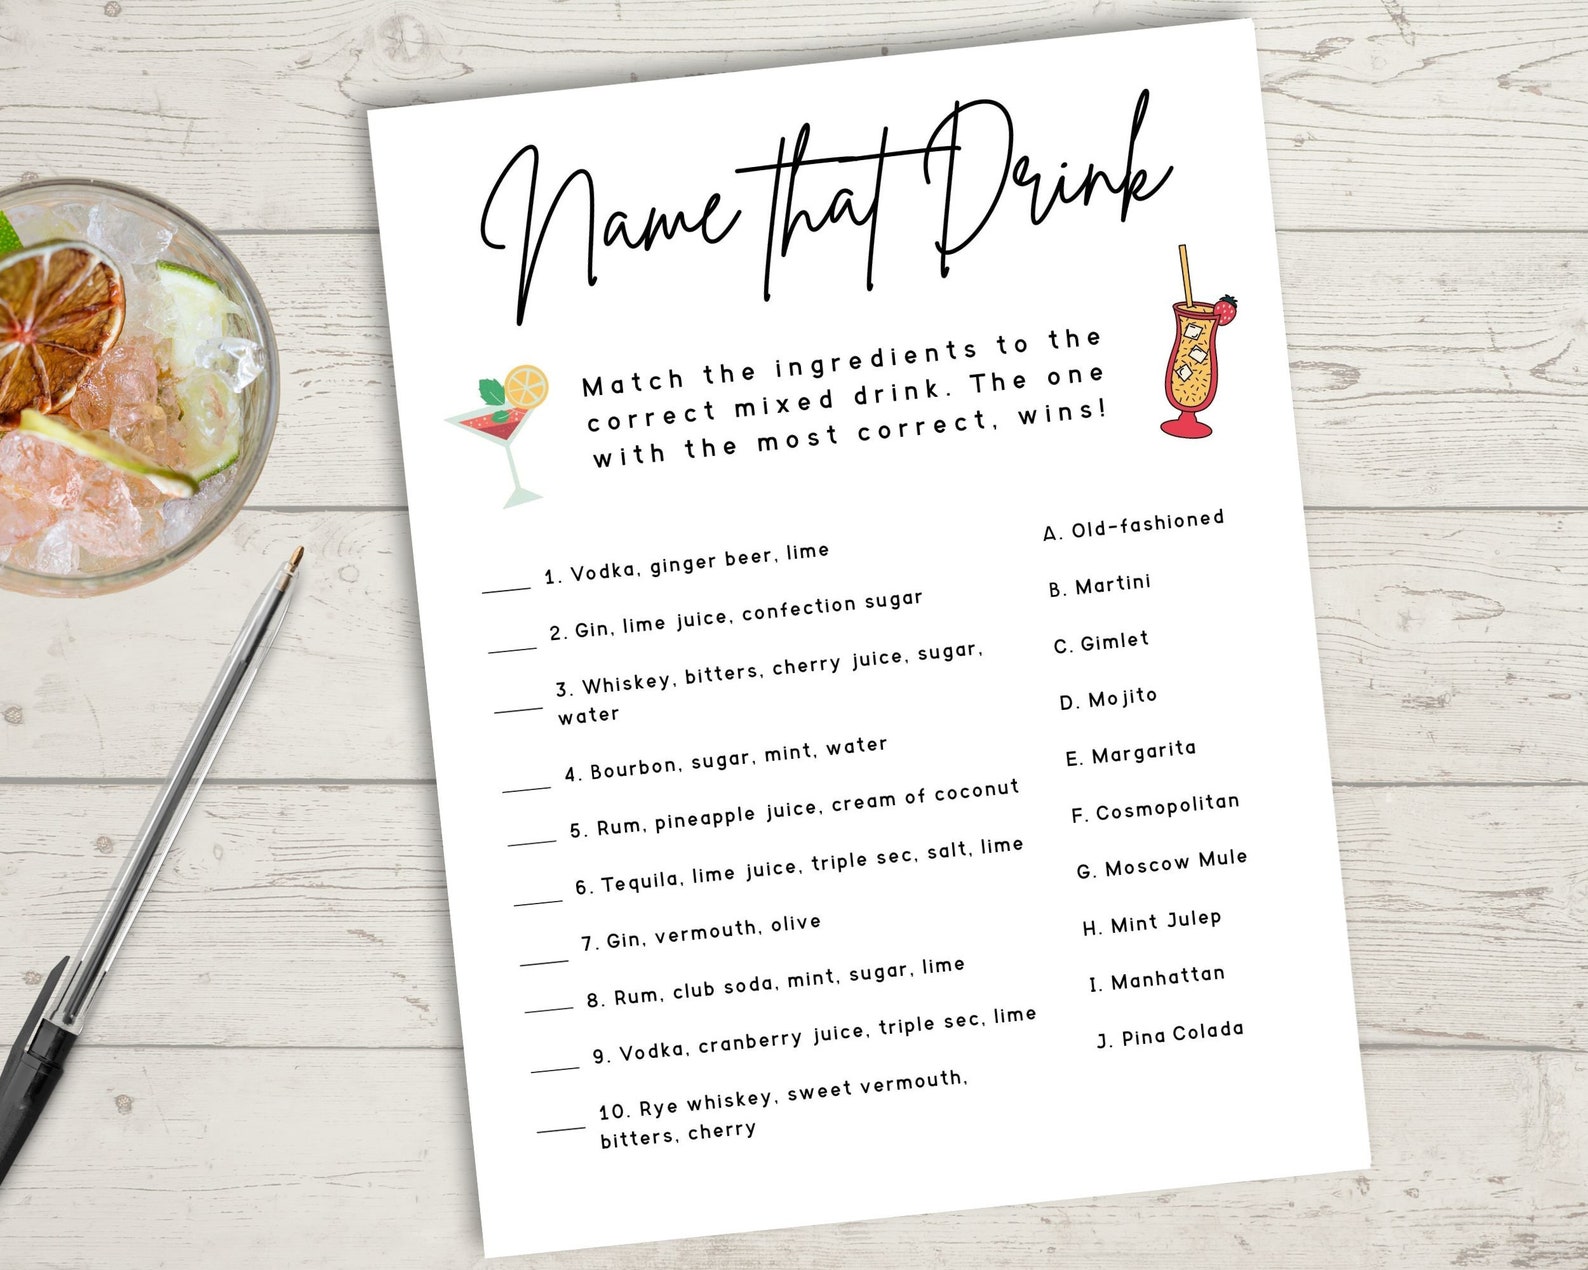 Name that Drink
Match the ingredients to the
correct mixed drink. The one
with the most correct, wins!
____ 1. Vodka, ginger beer, lime
____ 2. Gin, lime juice, confection sugar
____ 3. Whiskey, bitters, cherry juice, sugar,
water
____ 4. Bourbon, sugar, mint, water
____ 5. Rum, pineapple juice, cream of coconut
____ 6. Tequila, lime juice, triple sec, salt, lime
____ 7. Gin, vermouth, olive
____ 8. Rum, club soda, mint, sugar, lime
____ 9. Vodka, cranberry juice, triple sec, lime
____ 10. Rye whiskey, sweet vermouth,
bitters, cherry
A. Old-fashioned
B. Martini
C. Gimlet
D. Mojito
E. Margarita
F. Cosmopolitan
G. Moscow Mule
H. Mint Julep
I. Manhattan
J. Pina Colada